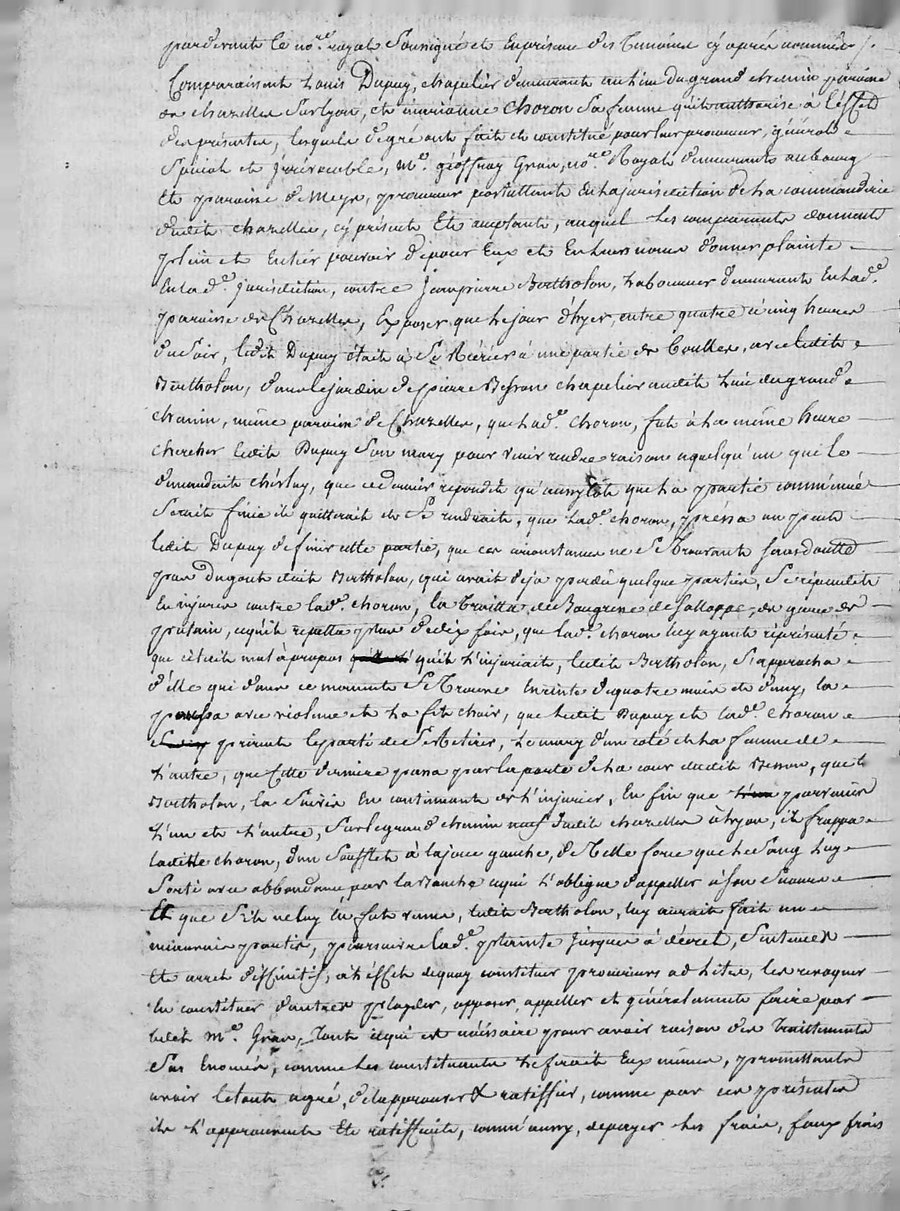 pardevant le no.re royal Soussigné et En présence des temoins cy après nommés
Comparaissent Louis Dupuy, chapelier demeurant au lieu du grand chemin paroisse
de chazelles Sur lyon, et marianne choron Sa femme qu'il authorise à l'effet
des présentes, lesquels de gré ont fait et constitué pour leur procureur, général
Spécial et Irrévocable, M.e géoffray Gran, no.re Royal demeurant au bourg
Et paroisse de Meys, procureur postullant En la jurisdiction de La commanderie
dudit chazelles, cy présent Et acceptant, auquel les comparants donnent
plein et Entier pouvoir de pour Eux et En leurs noms donner plainte
En lad.e jurisdiction, contre Jean pierre Bertholon, Laboureur demeurant En lad.e
paroisse de Chazelles, Exposer, que le jour d'hyer, entre quatre à cinq heures
du Soir, ledit Dupuy était à Se Récréer à une partie de boulles, avec ledit
Bertholon, dans le jardin de pierre Besson chapelier audit Lieu du grand
chemin, même paroisse de Chazelles, que lad.e Choron, fut à la même heure
chercher ledit Dupuy Son mary pour venir rendre raison a quelqu'un qui le
demandait chés luy, que ce dernier répondit qu'aussytôt que La partie commencée
Serait finie il quitterait et Se rendrait, que lad.e choron, préssa un peu
ledit Dupuy de finir cette partie, que ces circonstances ne Se trouvant Sans doutte
pas du gout dudit Bertholon, qui avait déja perdu quelque parties, Se répendit
En injures contre lad.e choron, la traitta de Bougresse de Salloppe, de garce de
putain, ce qu'il repetta plus de dix fois, que lad.e choron luy ayant réprésenté
que c'était mal à propos qu'il L'injuriait, ledit Bertholon, S'approcha
d'elle qui dans ce moment Se trouve Enceinte de quatre mois et demy, la
poussa avec violence et La fit choir, que ledit Dupuy et lad.e choron
prirent le parti de Se Retirer, Le mary d'un coté et La femme de
L'autre, que cette derniere passa par la porte de La cour dudit Besson, que le
Bertholon, la Suivit En continuant de L'injurier, En fin que parvenus
L'un et L'autre, Sur le grand chemin neuf dudit chazelles à lyon, il frappa
ladite choron, d'un Soufflet à la joue gauche, de telle force que le Sang luy
Sortit avec abbondance par la Bouche ce qui L'obligea d'appeller à Son Secours
Et que S'il ne luy En fut venu, ledit Bertholon, luy aurait fait un
mauvais parti, poursuivre lad.e plainte jusques à décret, Sentences
Et arret déffinitif, à L'éffet de quoy constituer procureurs ad lites, les revoquer
En constituer d'autres plaider, opposer, appeller et généralement faire par
ledit M.e Gran, tout ce qui est nécéssaire pour avoir raison des traittements
Sus Enoncés, comme les constituants Le ferait Eux mêmes, promettants
avoir le tout agré, de l'approuver & ratiffier, comme par ces présentes
ils L'approuvent Et ratiffient, comm'aussy, de payer les frais, faux frais